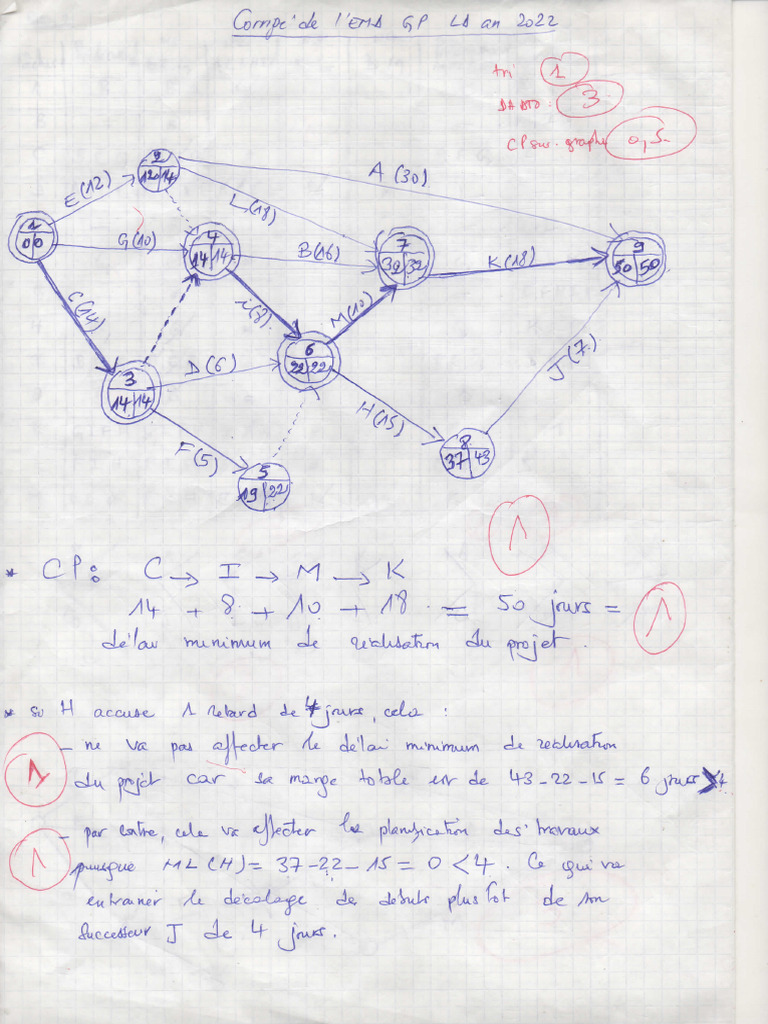 Corrigé de l'EMD GP LD an 2022
tri 1
DADTO. 3
CP sur graphe 0,5
A (30)
E(12)
2
12 14
L(18)
1
0 0
G(10)
4
14 14
B(16)
7
32 32
K(18)
9
50 50
C(14)
i(8)
M(10)
3
14 14
D(6)
6
22 22
J(7)
H(15)
F(5)
5
19 22
8
37 43
1
* CP: C → I → M → K
14 + 8 + 10 + 18 = 50 jours =
1
délai minimum de réalisation du projet.
* si H accuse 1 retard de 4 jours, cela :
- ne va pas affecter le délai minimum de réalisation
1
du projet car sa marge totale est de 43-22-15 = 6 jours > 4
- par contre, cela va affecter la planification des travaux
1
puisque ML(H) = 37-22-15 = 0 < 4. Ce qui va
entrainer le décalage des debuts plus tot de son
successeur J de 4 jours.